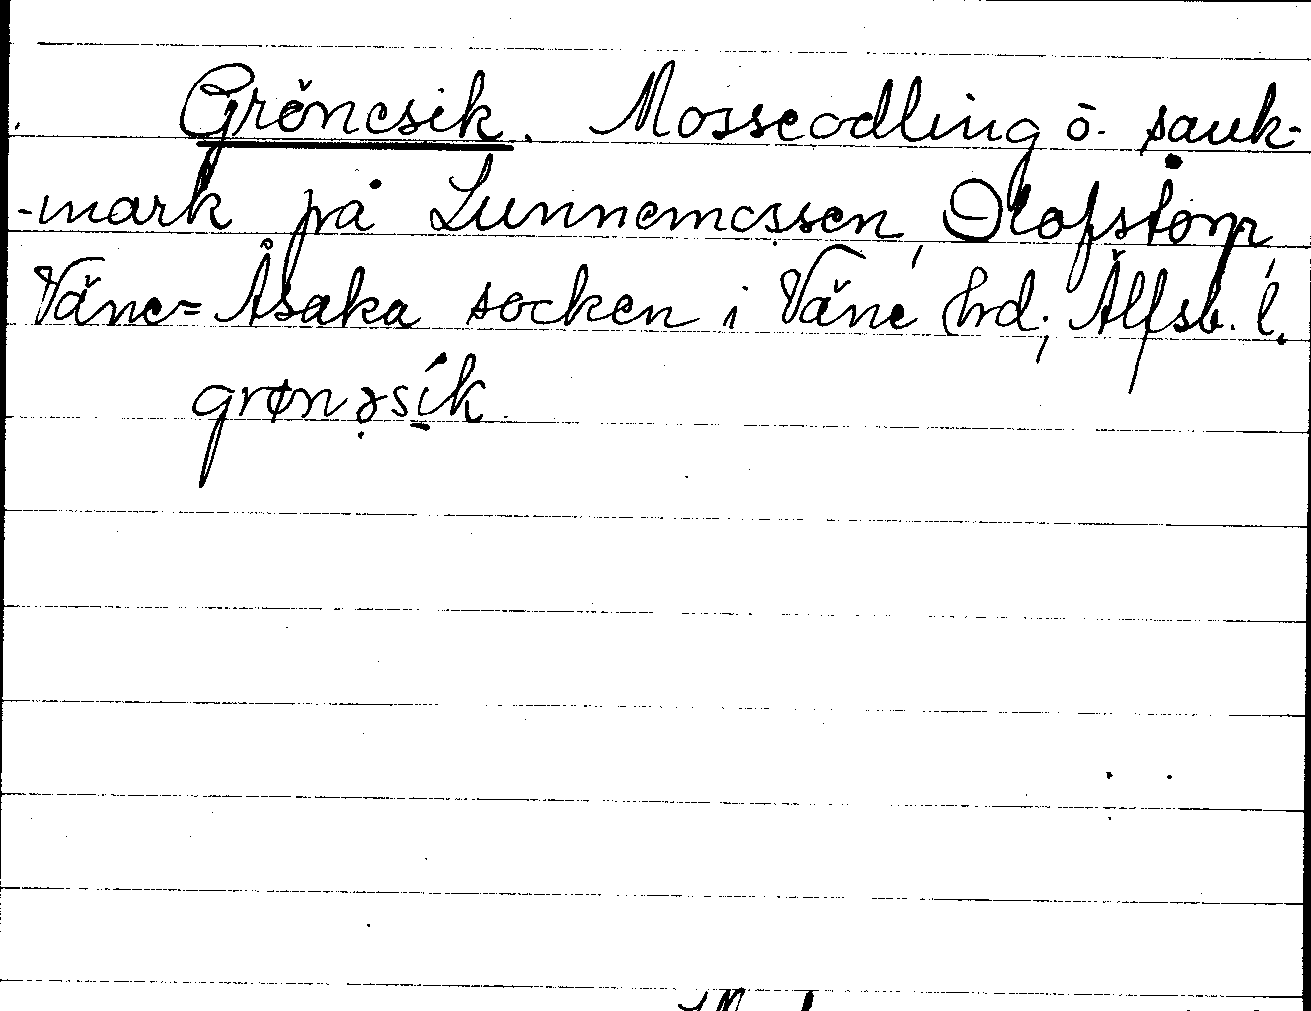 Grönesik. Mosseodling o. sank-
-mark på Lunnemossen, Olofstorp,
Väne=Åsaka socken i Väne hrd; Älfsb. l.
grønəsík